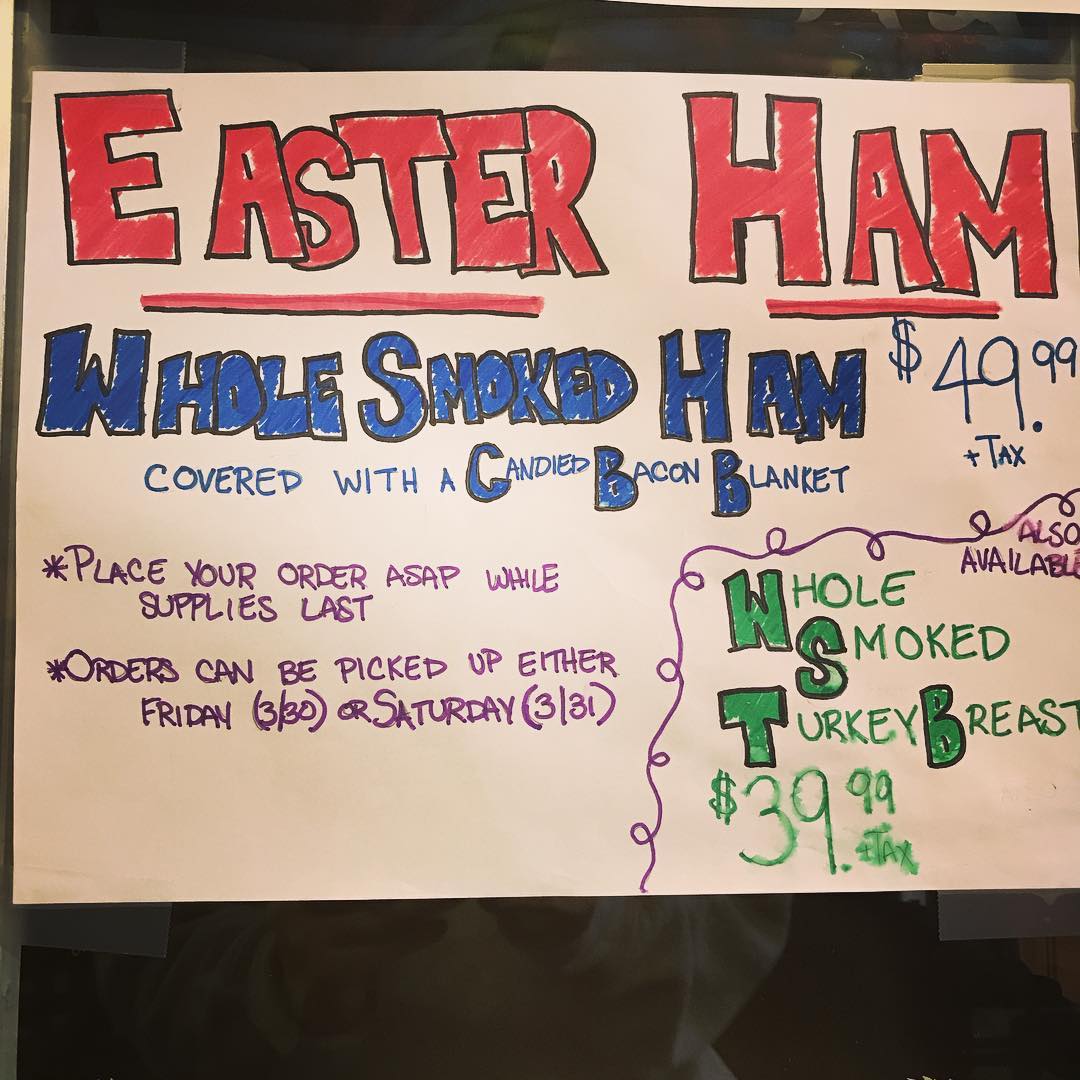 EASTER HAM
WHOLE SMOKED HAM $49.99
+TAX
COVERED WITH A CANDIED BACON BLANKET
*PLACE YOUR ORDER ASAP WHILE
SUPPLIES LAST
*ORDERS CAN BE PICKED UP EITHER
FRIDAY (3/30) OR SATURDAY (3/31)
ALSO
AVAILABLE
WHOLE
SMOKED
TURKEY BREAST
$39.99
+TAX